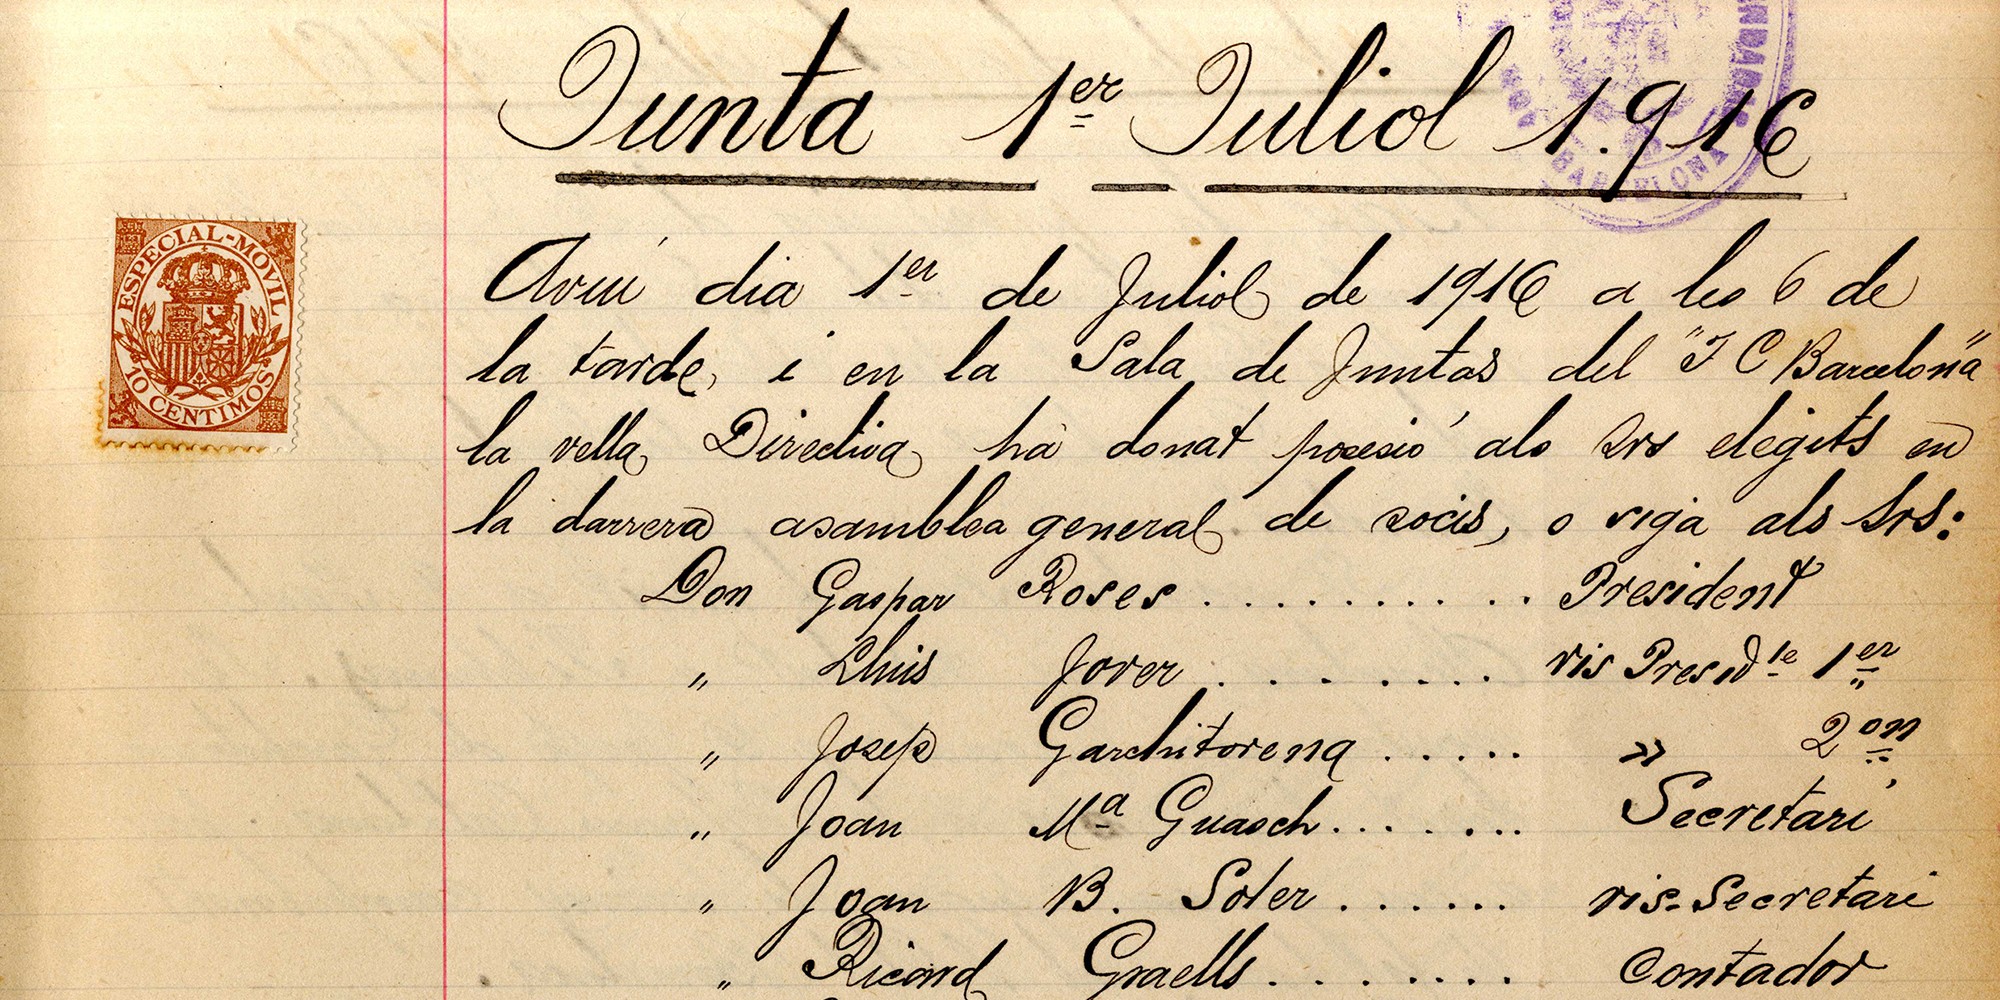 Junta 1er Juliol 1.916
BARCELONA
ESPECIAL-MOVIL
10 CENTIMOS
Avui dia 1er de Juliol de 1916 a les 6 de
la tarde, i en la Sala de Juntas del "F C Barcelona"
la vella Directiva, hà donat posesió als Srs elegits en
la darrera asamblea general de socis, o siga als Srs:
Don Gaspar Roses . . . . . . . . . . . President
„ Lluis Jover . . . . . . . . vis Presidte 1er
„ Josep Garchitorena . . . . . » 2on
„ Joan Ma Guasch . . . . . . . Secretari
„ Joan B. Soler . . . . . . vis-Secretari
„ Ricard Graells . . . . . . . Contador